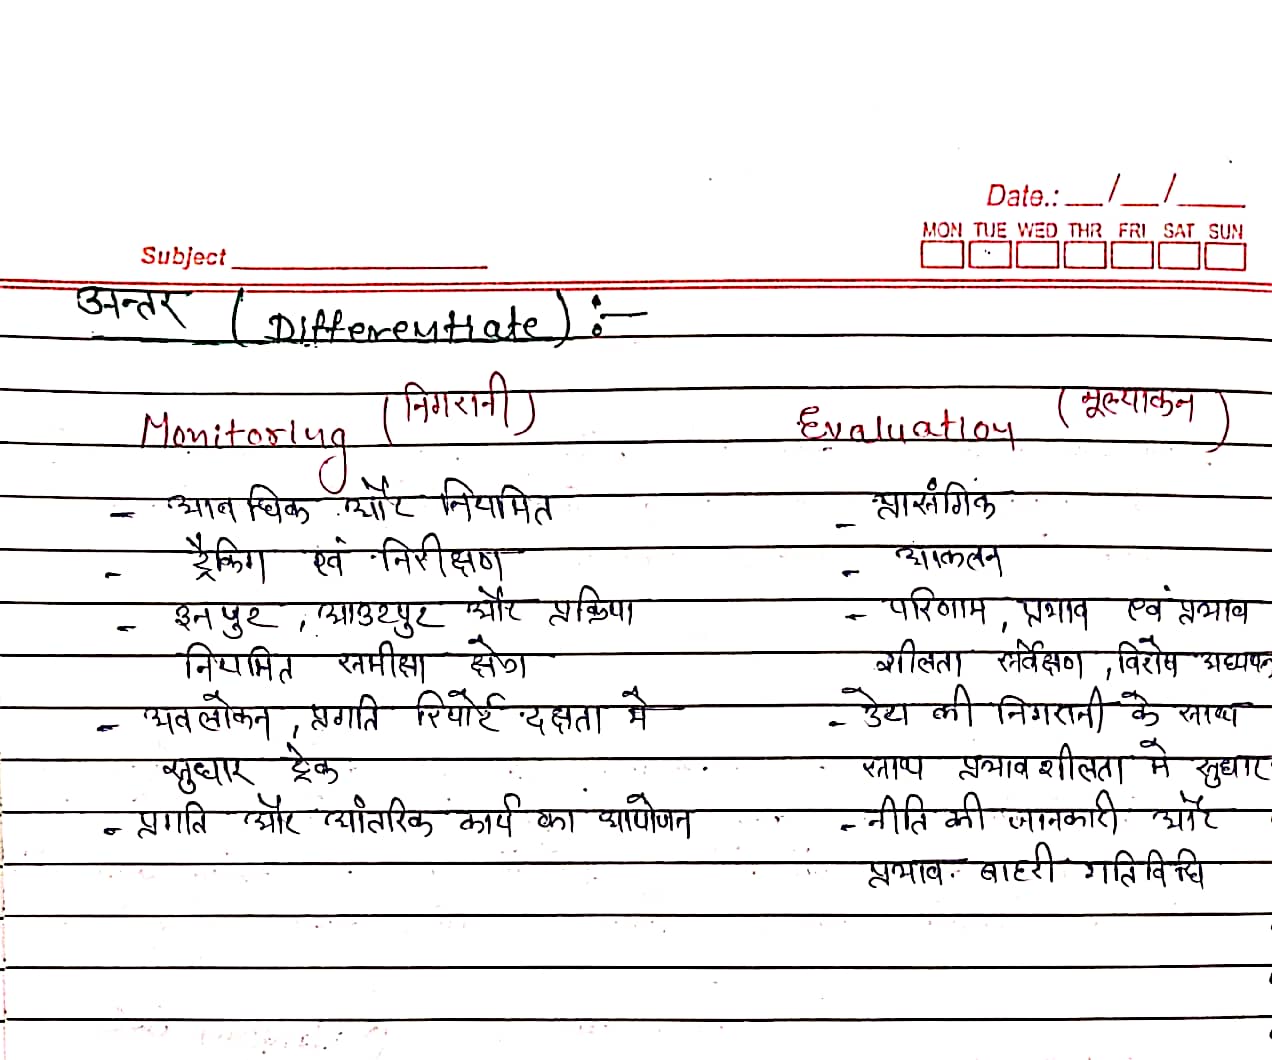 Date.: __/__/____
MON TUE WED THR FRI SAT SUN
Subject
अन्तर (Differentiate) :-
Monitoring (निगरानी)
Evaluation (मूल्याकन)
- आवधिक और नियमित
- ट्रैकिग एवं निरीक्षण
- इनपुट, आउटपुट और प्रक्रिया
नियमित समीक्षा क्षेत्र
- अवलोकन, प्रगति रिपोर्ट दक्षता मे
सुधार ट्रेक
- प्रगति और आंतरिक कार्य का आयोजन
- प्रासंगिक
- आकलन
- परिणाम, प्रभाव एवं प्रभाव
शीलता सर्वेक्षण, विशेष अध्ययन
- की निगरानी के साथ
साथ प्रभावशीलता मे सुधार
- नीति की जानकारी और
प्रभाव. बाहरी गतिविधि